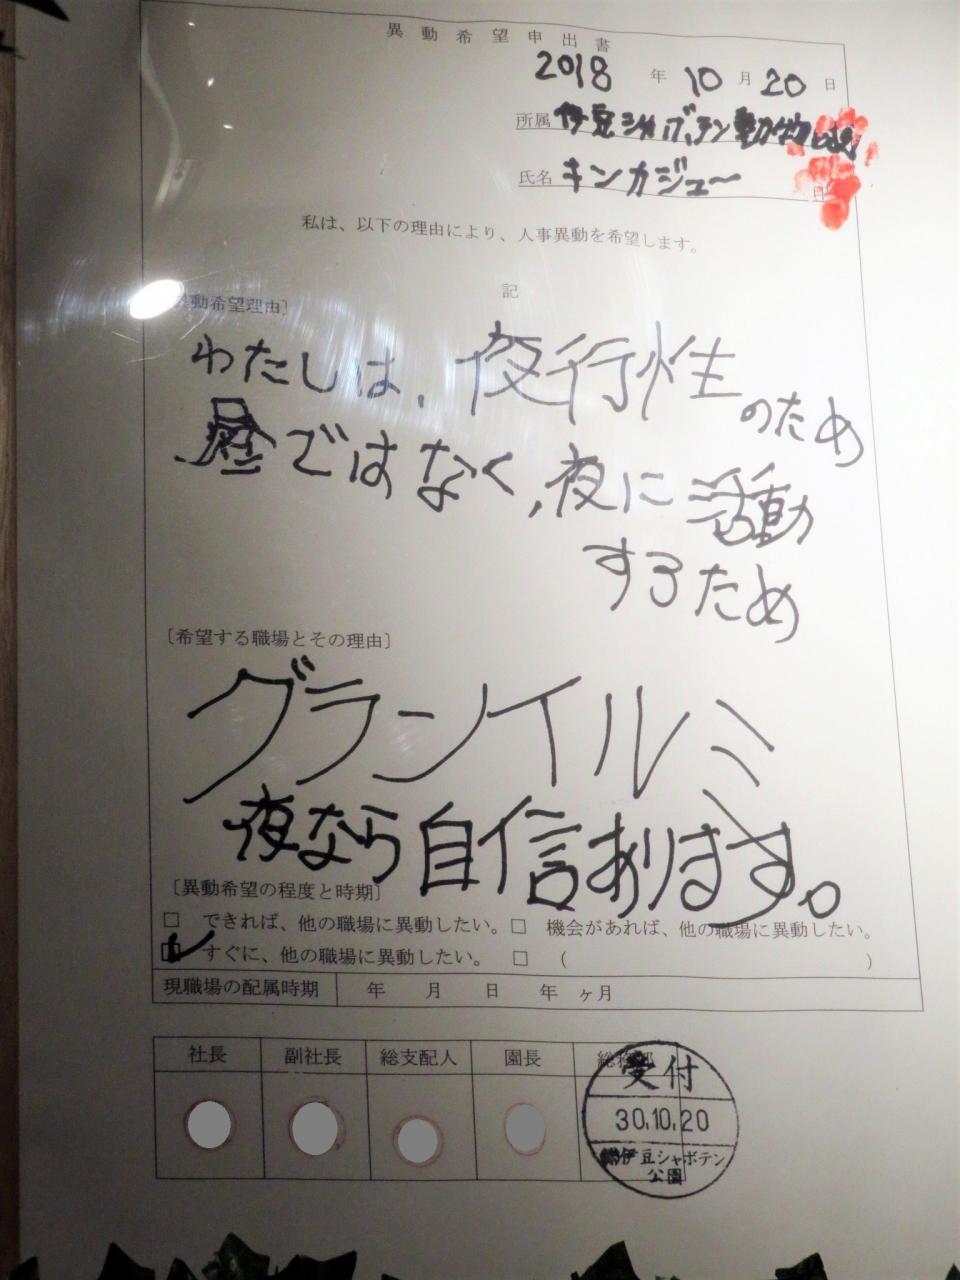 異動希望申出書
2018 年 10 月 20 日
所属 伊豆シャボテン動物公園
氏名 キンカジュー 印
私は、以下の理由により、人事異動を希望します。
記
異動希望理由〕
わたしは、夜行性のため
昼ではなく、夜に活動
するため
〔希望する職場とその理由〕
グランイルミ
夜なら自信あります。
〔異動希望の程度と時期〕
□ できれば、他の職場に異動したい。□ 機会があれば、他の職場に異動したい。
☑ すぐに、他の職場に異動したい。 □ ( )
現職場の配属時期 年 月 日 年 ヶ月
社長 副社長 総支配人 園長 総務部
受付
30.10.20
伊豆シャボテン
公園